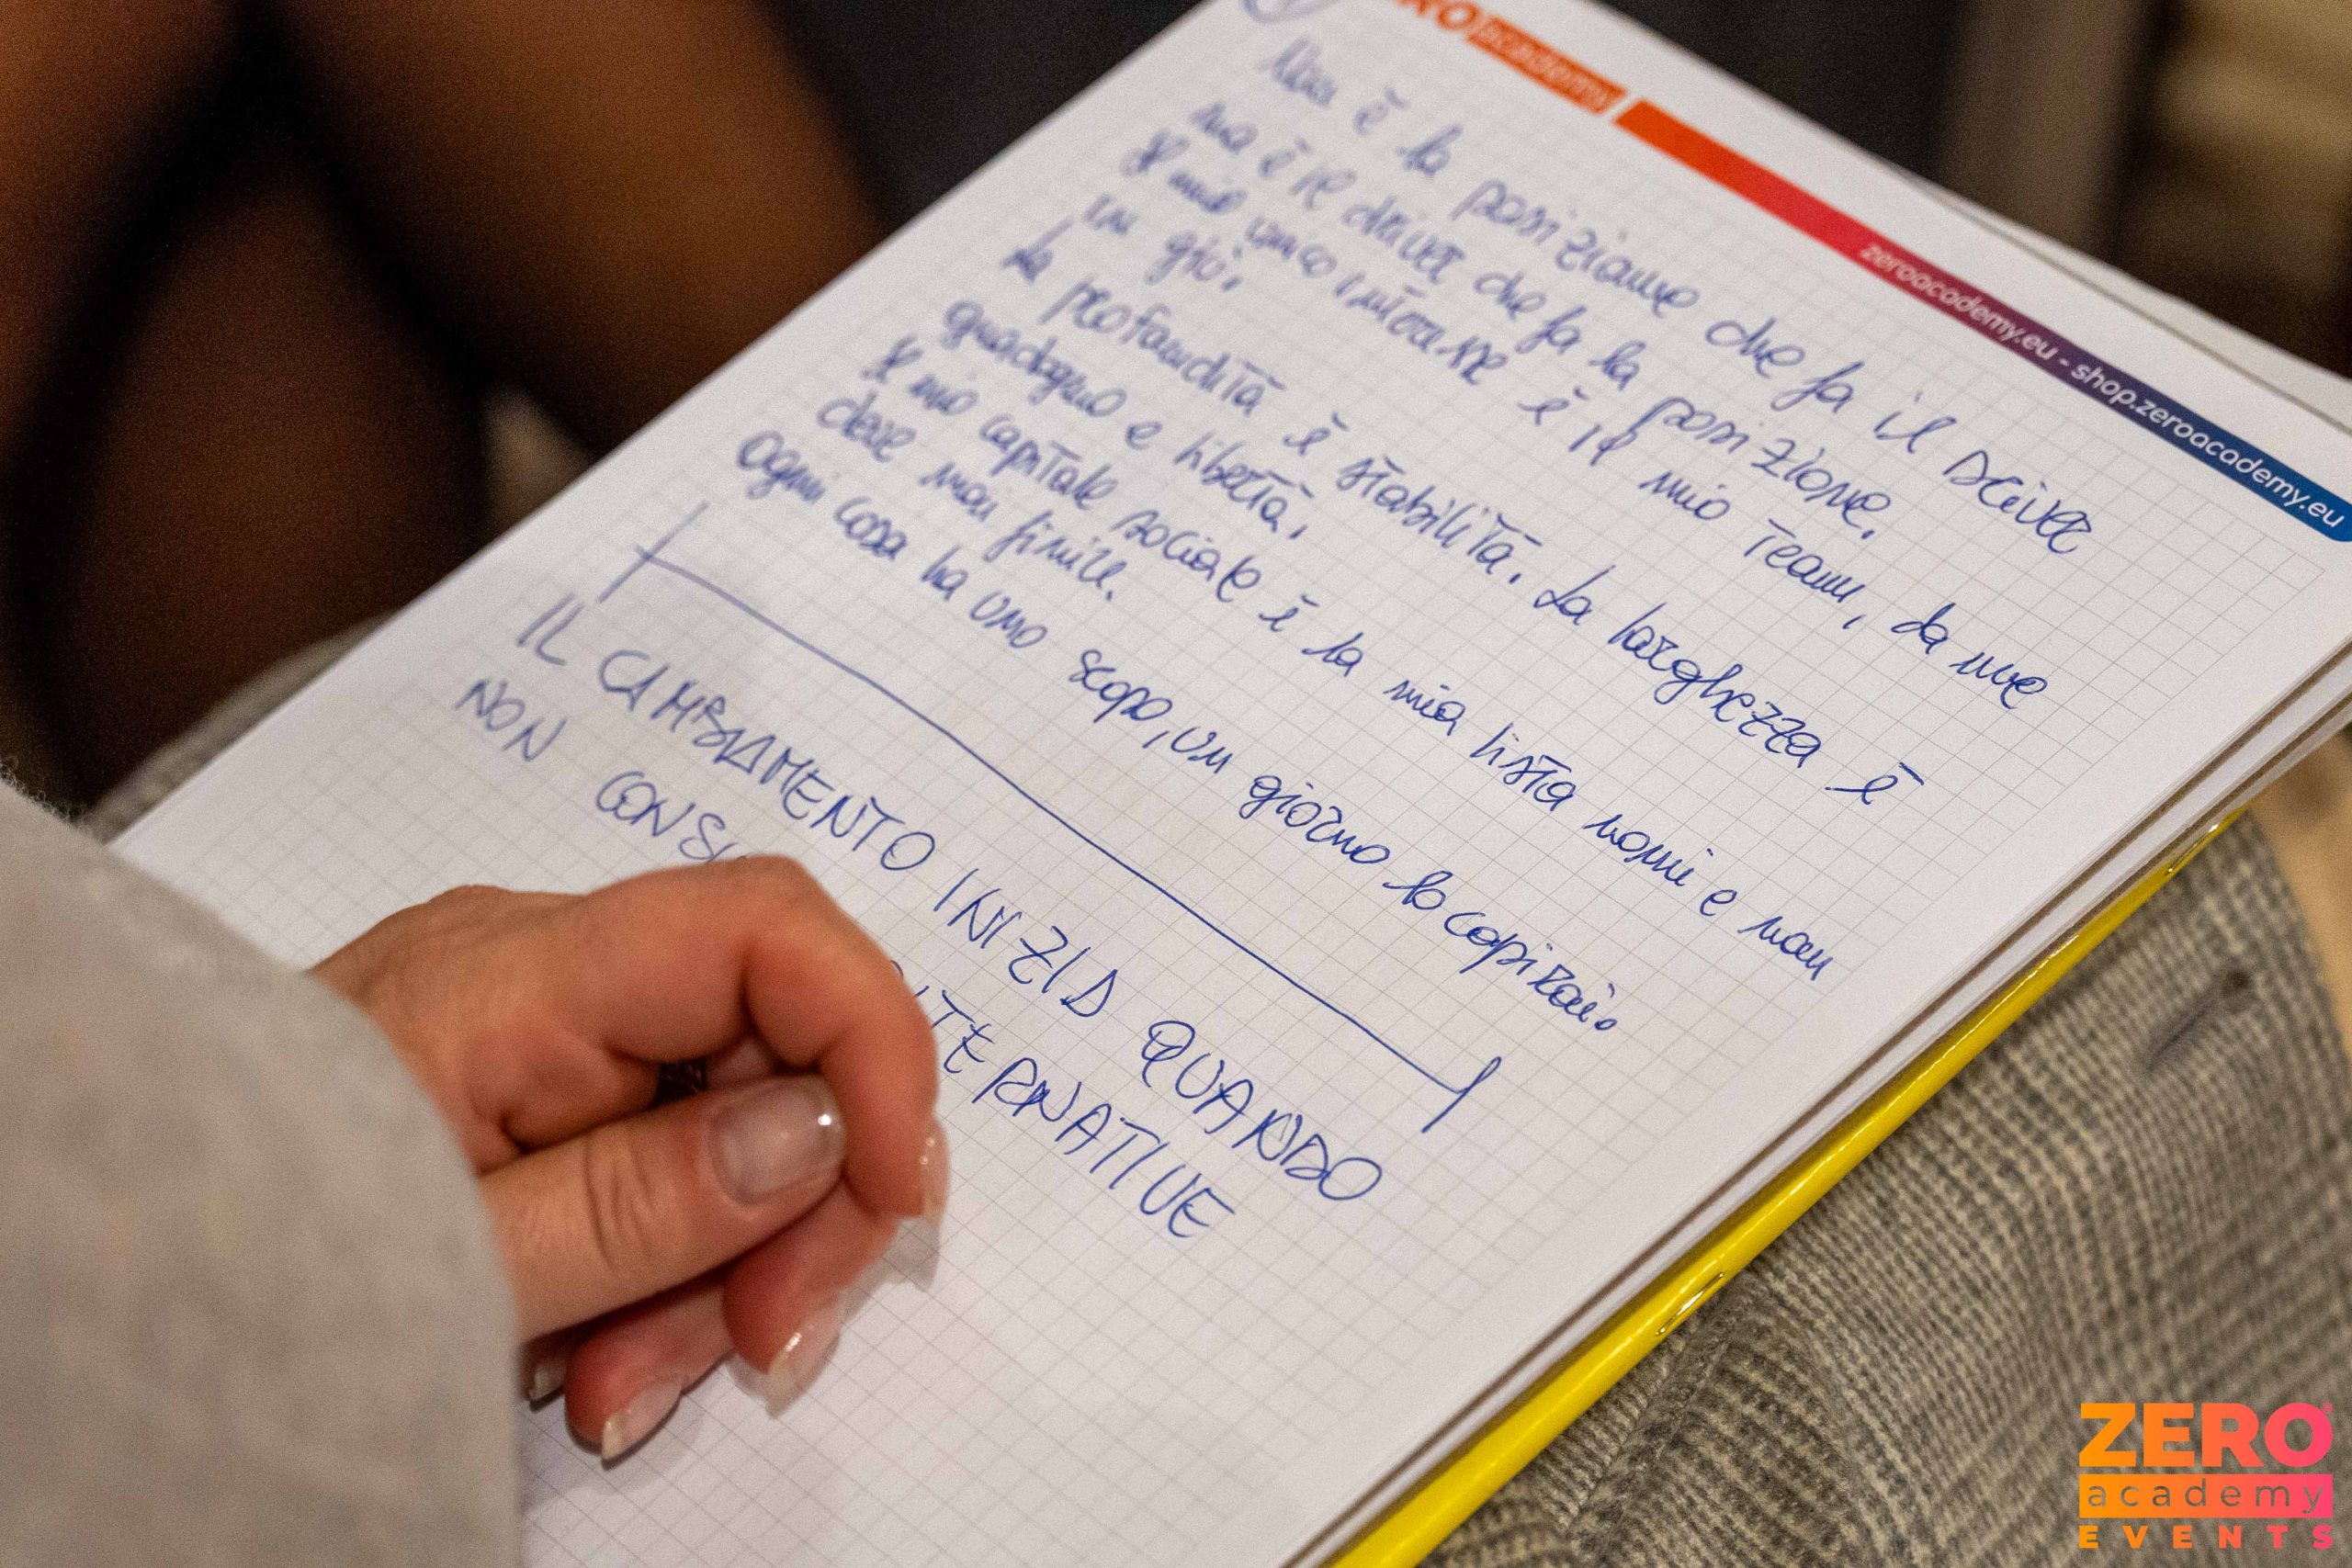 ZERO academy
zeroacademy.eu - shop.zeroacademy.eu
Non è la posizione che fa il driver
ma è il driver che fa la posizione.
Il mio unico interesse è il mio team, da me
in giù.
La profondità è stabilità. La larghezza è
guadagno e libertà.
Il mio capitale sociale è la mia lista nomi e non
deve mai finire.
Ogni cosa ha uno scopo, un giorno lo capirai.
IL CAMBIAMENTO INIZIA QUANDO
NON
ZERO
academy
EVENTS